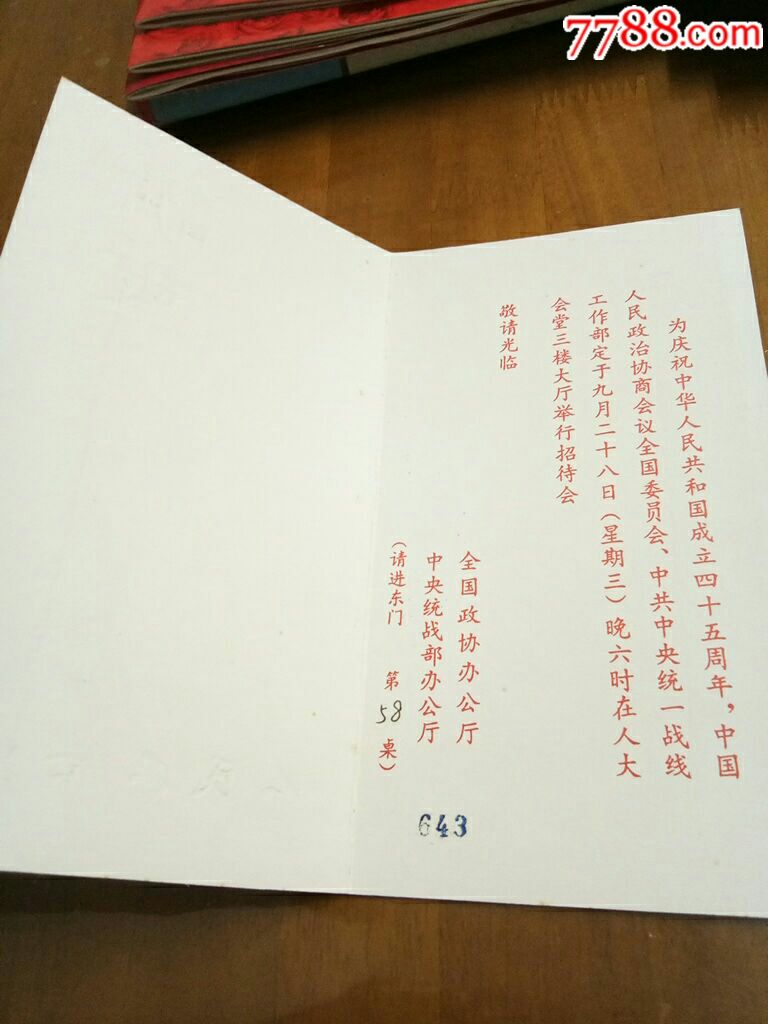 7788.com
为庆祝中华人民共和国成立四十五周年，中国
人民政治协商会议全国委员会、中共中央统一战线
工作部定于九月二十八日（星期三）晚六时在人大
会堂三楼大厅举行招待会
敬请光临
全国政协办公厅
中央统战部办公厅
（请进东门 第58桌）
643